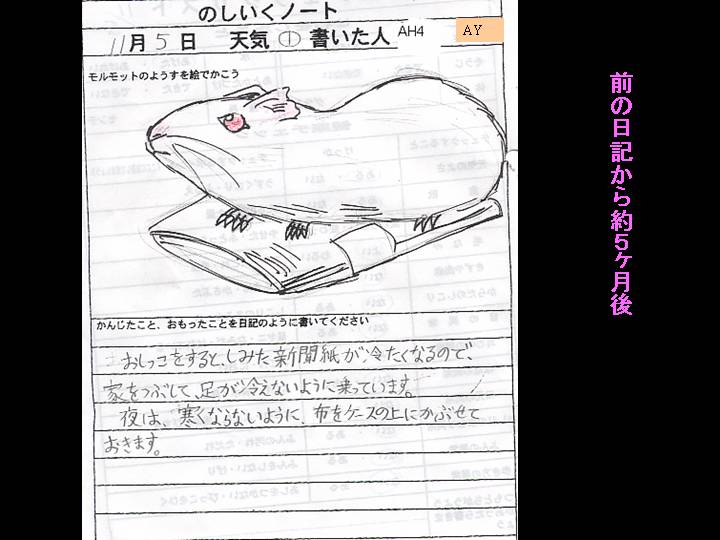 のしいくノート
11月5日 天気 ① 書いた人 AH4 AY
モルモットのようすを絵でかこう
前の日記から約5ヶ月後
かんじたこと、おもったことを日記のように書いてください
おしっこをすると、しみた新聞紙が冷たくなるので、
家をつぶして、足が冷えないように乗っています。
夜は、寒くならないように、布をケースの上にかぶせて
おきます。